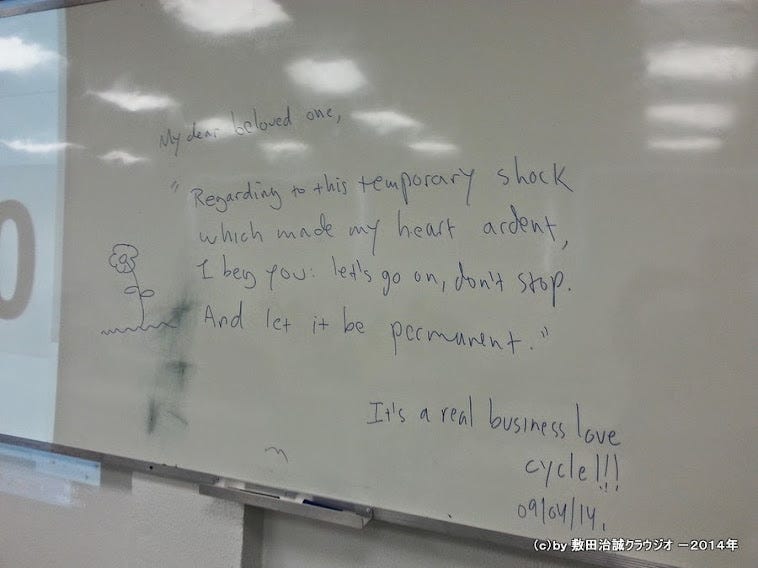 My dear beloved one,
"Regarding to this temporary shock
which made my heart ardent,
I beg you: let's go on, don't stop.
And let it be permanent."
It's a real business love
cycle!!!
09/04/14.
0
(c)by 敷田治誠クラウジオ －2014年